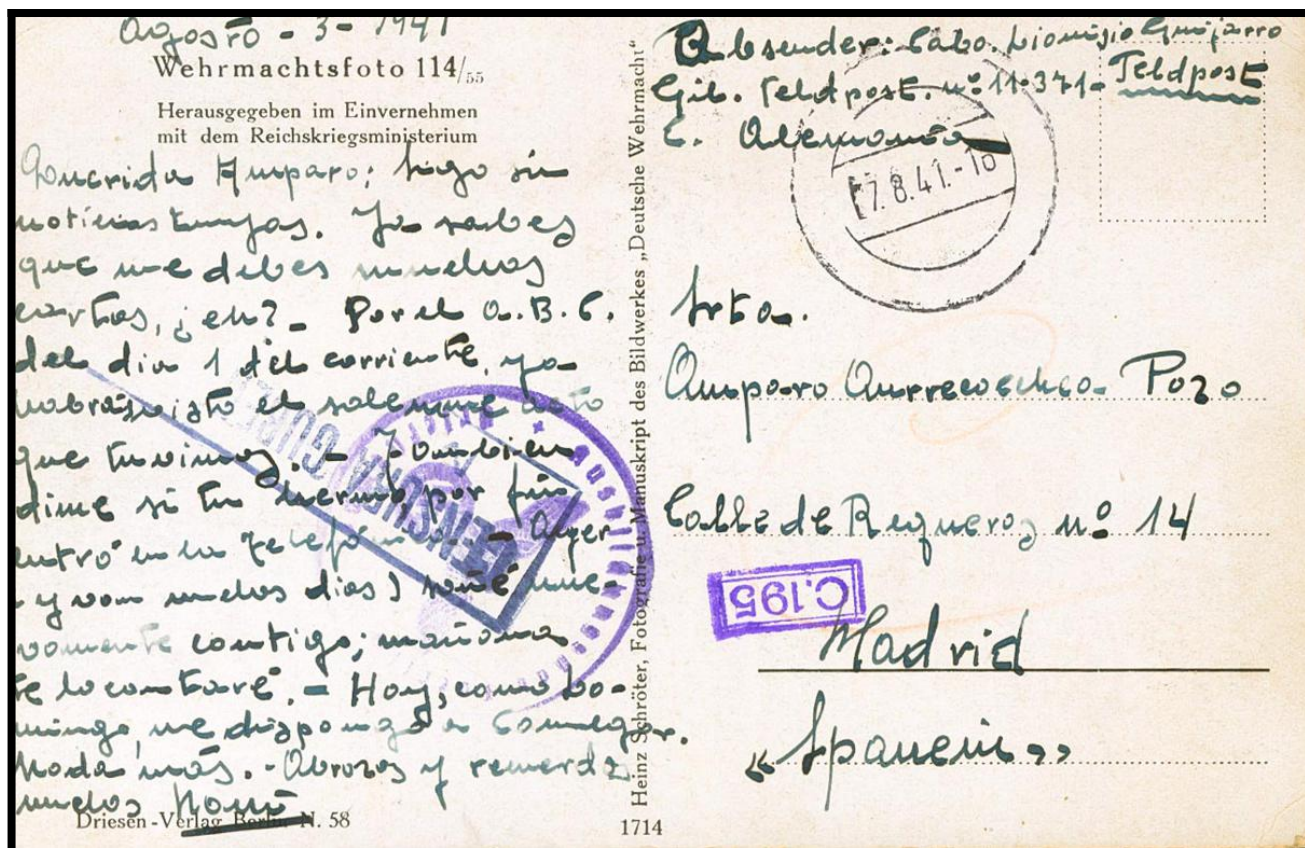 Agosto - 3 - 1941
Wehrmachtsfoto 114/55
Herausgegeben im Einvernehmen
mit dem Reichskriegsministerium
Querida Amparo: Sigo sin
noticias tuyas. Ya sabes
que me debes muchas
cartas, ¿eh? - Por el A.B.C.
del dia 1 del corriente, ya
habras visto el solemne acto
que tuvimos. - Tambien
dime si tu hermo, por fin
entró en la Telefónica. - Ayer
y van muchos dias) soñé nue-
vamente contigo; mañana
te lo contaré. - Hoy, como Do-
mingo, me dispongo a comulgar.
Nada más. - Abrazos y
muchos
Driesen-Verlag Berlin N. 58
Heinz Schröter, Fotografie u. Manuskript des Bildwerkes „Deutsche Wehrmacht"
1714
Absender: Cabo. Dionisio Guijarro
Gil. Feldpost. nº 11.371 - Feldpost
Alemania
7.8.41.-18
Srta.
Amparo Aurrecoechea Pozo
Calle de Regueros nº 14
C.195
Madrid
« Spanein »
CENSURA GUBER